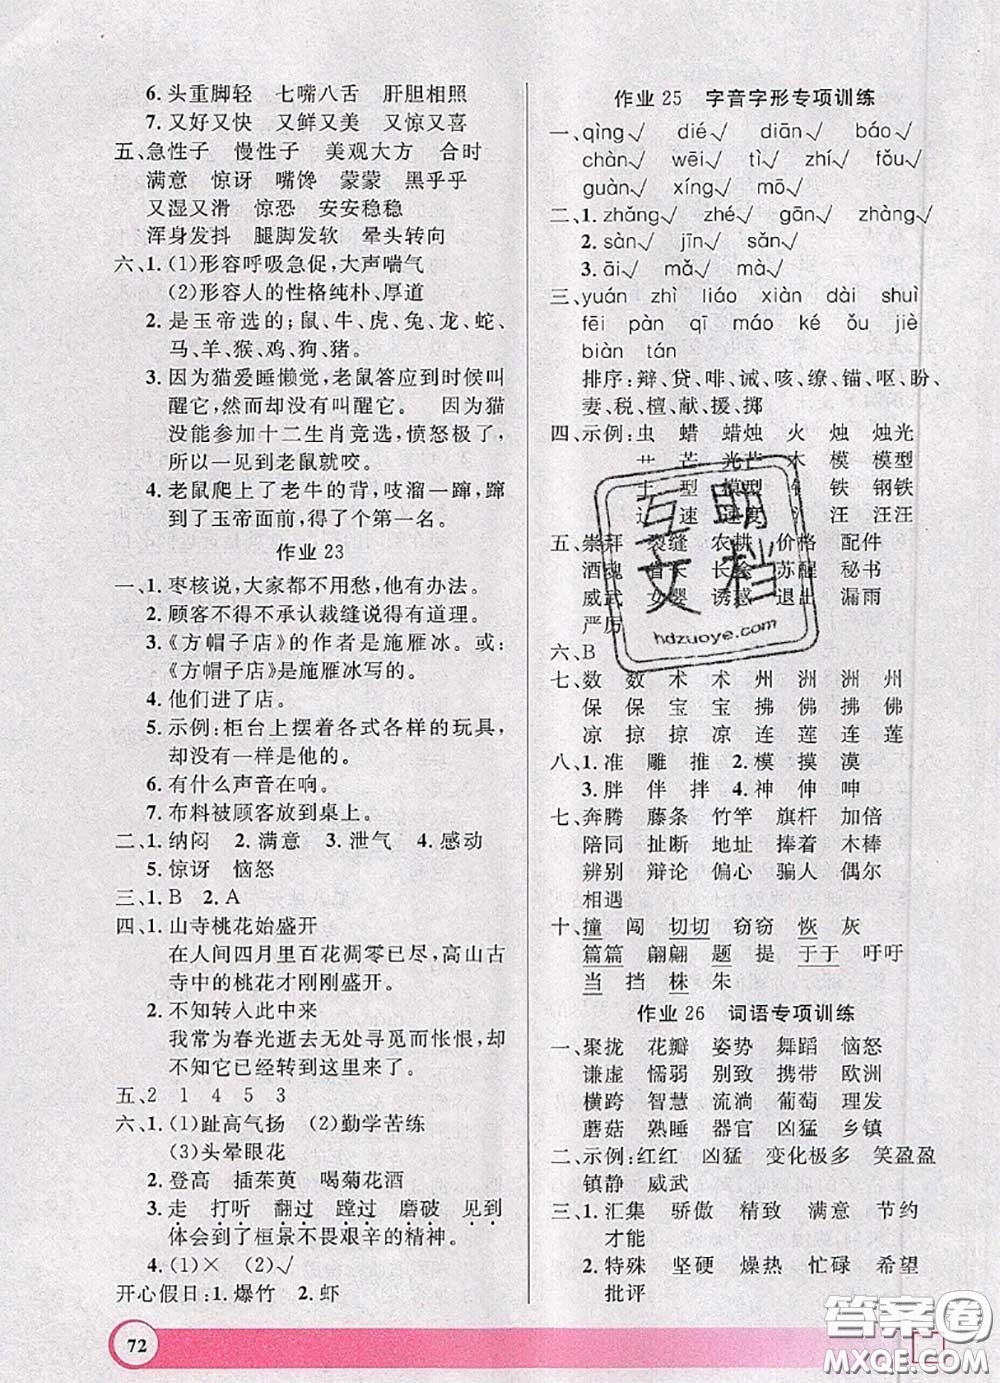 6.头重脚轻 七嘴八舌 肝胆相照
7.又好又快 又鲜又美 又惊又喜
五、急性子 慢性子 美观大方 合时
满意 惊讶 嘴馋 蒙蒙 黑乎乎
又湿又滑 惊恐 安安稳稳
浑身发抖 腿脚发软 晕头转向
六、1.(1)形容呼吸急促,大声喘气
(2)形容人的性格纯朴、厚道
2.是玉帝选的;鼠、牛、虎、兔、龙、蛇、
马、羊、猴、鸡、狗、猪。
3.因为猫爱睡懒觉,老鼠答应到时候叫
醒它,然而却没有叫醒它。 因为猫
没能参加十二生肖竞选,愤怒极了,
所以一见到老鼠就咬。
4.老鼠爬上了老牛的背,吱溜一蹿,蹿
到了玉帝面前,得了个第一名。
作业23
一、1.枣核说,大家都不用愁,他有办法。
2.顾客不得不承认裁缝说得有道理。
3.《方帽子店》的作者是施雁冰。或:
《方帽子店》是施雁冰写的。
4.他们进了店。
5.示例:柜台上摆着各式各样的玩具,
却没有一样是他的。
6.有什么声音在响。
7.布料被顾客放到桌上。
二、1.纳闷 2.满意 3.泄气 4.感动
5.惊讶 恼怒
三、1.B 2.A
四、1.山寺桃花始盛开
在人间四月里百花凋零已尽,高山古
寺中的桃花才刚刚盛开。
2.不知转入此中来
我常为春光逝去无处寻觅而怅恨,却
不知它已经转到这里来。
五、2 1 4 5 3
六、1.(1)趾高气扬 (2)勤学苦练
(3)头晕眼花
2.登高 插茱萸 喝菊花酒
3.走 打听 翻过 蹚过 磨破 见到
体会到了桓景不畏艰辛的精神。
4.(1)× (2)√
开心假日:1.爆竹 2.虾
72
作业25 字音字形专项训练
一、qìng√ dié√ diān√ báo√
chàn√ wēi√ tì√ zhí√ fǒu√
guàn√ xíng√ mō√
二、1.zhǎng√ zhé√ gān√ zhàng√
2.sàn√ jīn√ sǎn√
3.āi√ mǎ√ mà√
三、yuán zhì liáo xiàn dài shuì
fēi pàn qī máo ké ǒu jiè
biàn tán
排序:辩、贷、啡、诫、咳、缭、锚、呕、盼、
妻、税、檀、献、援、掷
四、示例:虫 蜡 蜡烛 火 烛 烛光
艹 芒 光芒 木 模 模型
土 型 模型 钅 铁 钢铁
辶 速 速度 氵 汪 汪汪
五、崇拜 裂缝 农耕 价格 配件
酒魂 省长 长途 苏醒 秘书
威武 女婴 诱惑 退出 漏雨
严厉
六、B
七、数 数 术 术 州 洲 洲 州
保 保 宝 宝 拂 佛 拂 佛
凉 掠 掠 凉 连 莲 连 莲
八、1.准 雕 推 2.模 摸 漠
3.胖 伴 拌 4.神 伸 呻
七、奔腾 藤条 竹竿 旗杆 加倍
陪同 扯断 地址 捧着 木棒
辨别 辩论 偏心 骗人 偶尔
相遇
十、撞 闯 切切 窃窃 恢 灰
篇篇 翩翩 题 提 于于 吁吁
当 挡 株 朱
作业26 词语专项训练
一、聚拢 花瓣 姿势 舞蹈 恼怒
谦虚 懦弱 别致 携带 欧洲
横跨 智慧 流淌 葡萄 理发
蘑菇 熟睡 器官 凶猛 乡镇
二、示例:红红 凶猛 变化极多 笑盈盈
镇静 威武
三、1.汇集 骄傲 精致 满意 节约
才能
2.特殊 坚硬 燥热 忙碌 希望
批评
互助文档
hdzuoye.com
答案圈
MXQE.COM